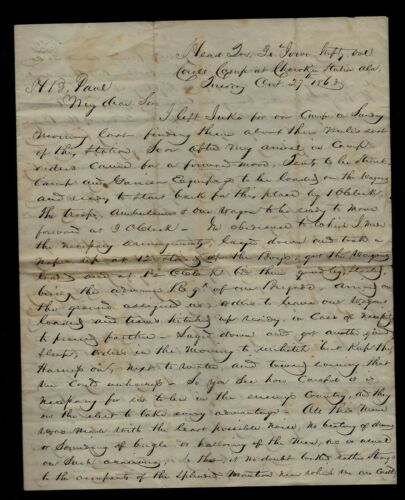 Head Qrs 2 Iowa Infty
Camp at Cherokee Station Ala
Tuesday Oct. 27 1863
My dear Sir
I left Iuka for our Camp on Sunday
Morning Last finding them about three Miles east
of this Station Soon after my arrival at Camp
orders came for a forward move. Tents to be Struck
Camp and Equipage to be loaded on the Wagons
and ready to Start back for this place by 1 OClock.
The troops, Ambulances & one Wagon to be ready to Move
forward at 3 OClock – In obedience to which I made
the necessary arrangements, laid down and took a
nap up at 12 of the Boys, got the Wagons
loaded and at OClock bid them good by,
being the advance of our Brigade. Arrived on
the ground assigned us, orders to leave our Wagons
loaded and teams hitched up ready in Case of
to proceed farther – laid down and got another good
Sleep, orders in the Morning to unhitch but Keep the
Harness on, next to water and towards evening that
we Could unharness – So you See how Careful it is
necessary for us to be in the enemys Country, and they
on the alert to take every advantage – All this Move
was Made with the least possible noise, no beating of drums
or Sounding of bugle or hallooing of the Men, as is usual
on Such occasions, So that it no doubt looked rather strange
to the occupants of the Splendid Mansion near which we are